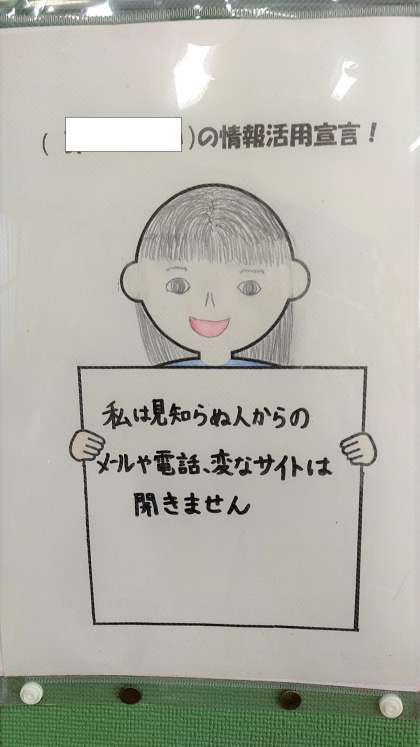 ( )の情報活用宣言！
私は見知らぬ人からの
メールや電話、変なサイトは
開きません